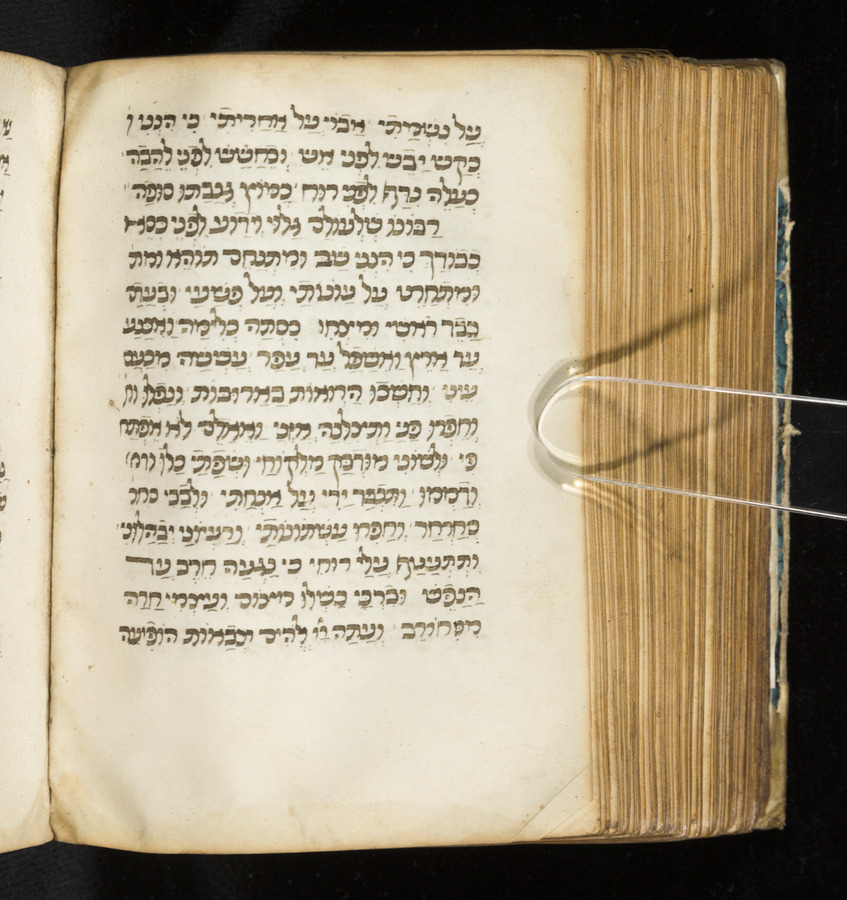 על נשמתי אבוי על אחריתי כי הנני
כקש יבש לפני אש וכחשש לפני להבה
כעלה נדף לפני רוח כמוץ גנבתו סופה
רבונו שלעולם גלוי וידוע לפני כסא
כבודך כי הנני שב ומתנחם תוהא ומת
ומתחרט על עונותי ועל פשעי ובעת
כבד ראשי ומצחו כסתה כלימה ואכנע
עד ארץ ואשפל עד עפר עששה מכעס
עיני וחשכו הרואות בארובות ונפלו
וחפרו פני ותיכלנה ואאלם לא אפתח
פי ולשוני מודבק מלקוחי ושפתי כלו
ודממו ותכבד ידי על אנחתי ולבבי סחר
סחרחר עשתונותי ורעיוני יבהלוני
ותתעטף עלי רוחי כי נגעה חרב עד
הנפש וברכי כשלו מצום ועצמי חרה
מני חורב ועתה יי להים צבאות הופיעה